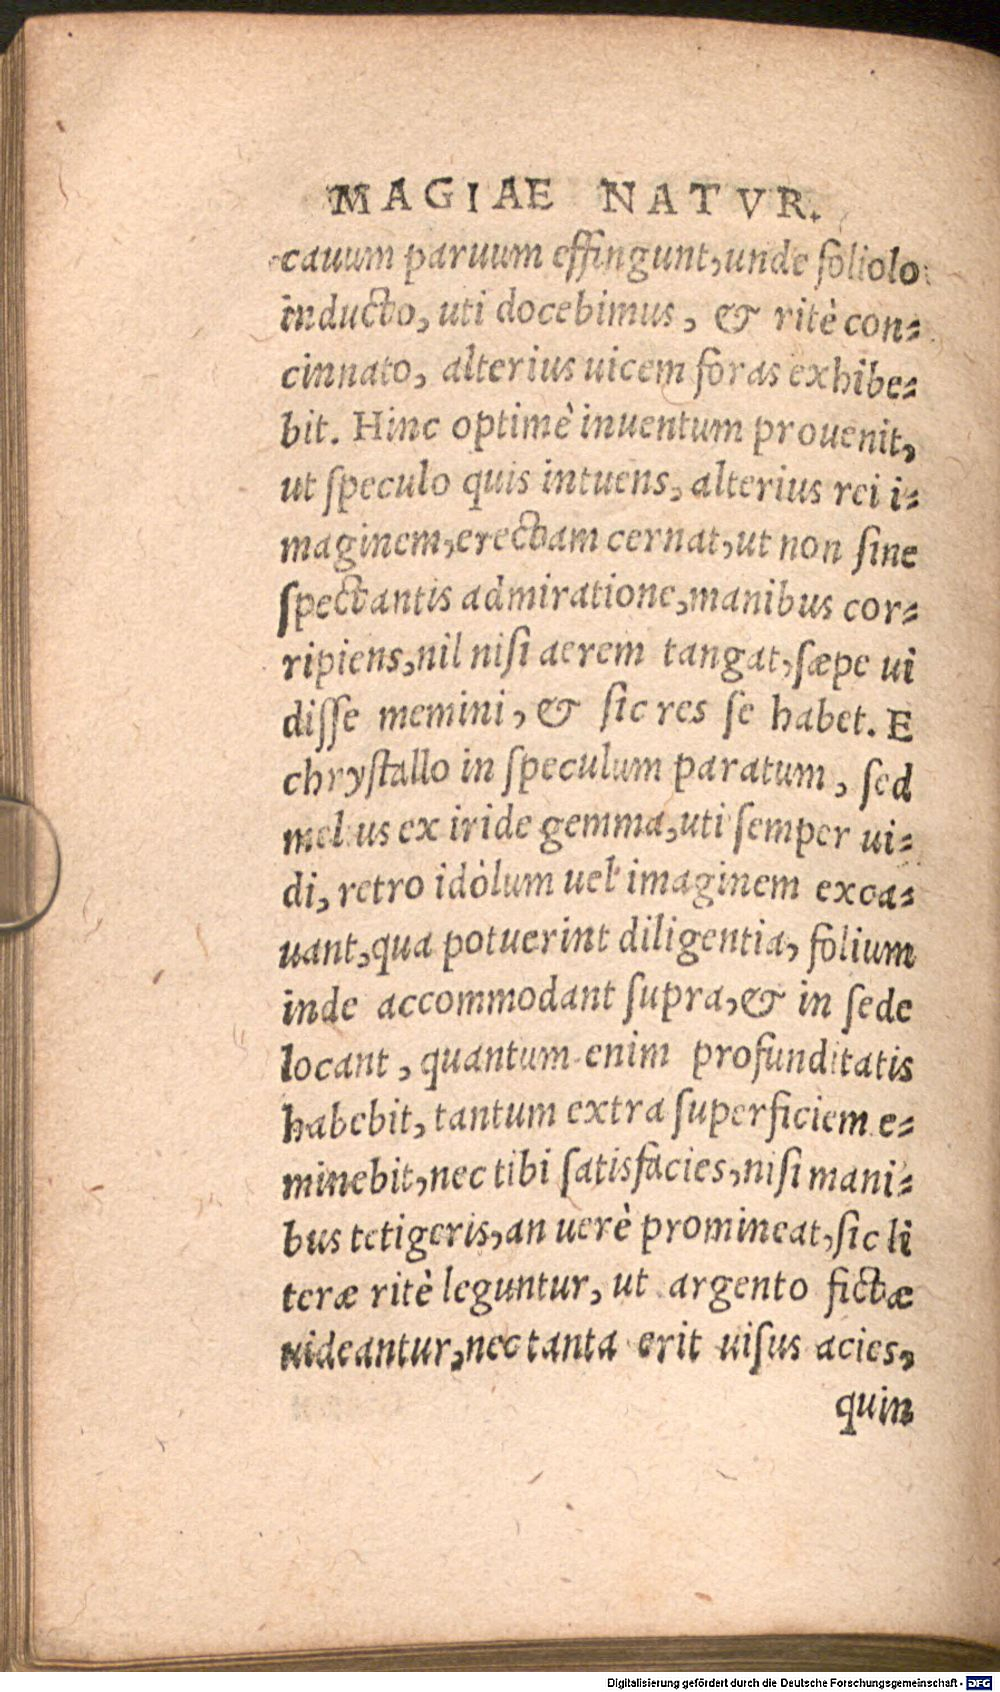 MAGIAE NATVR.
cauum paruum effingunt, unde foliolo
inducto, uti docebimus, & ritè con-
cinnato, alterius uicem foras exhibe-
bit. Hinc optimè inuentum prouenit,
ut ſpeculo quis intuens, alterius rei i-
maginem, erectam cernat, ut non ſine
ſpectantis admiratione, manibus cor-
ripiens, nil niſi aerem tangat, ſæpe ui
diſſe memini, & ſic res ſe habet. E
chryſtallo in ſpeculum paratum, ſed
melius ex iride gemma, uti ſemper ui-
di, retro idòlum uel imaginem exca-
uant, qua potuerint diligentia, folium
inde accommodant ſupra, & in ſede
locant, quantum enim profunditatis
habebit, tantum extra ſuperficiem e-
minebit, nec tibi ſatisfacies, niſi mani-
bus tetigeris, an uerè promineat, ſic li
teræ ritè leguntur, ut argento fictæ
uideantur, nec tanta erit uiſus acies,
quin
Digitalisierung gefördert durch die Deutsche Forschungsgemeinschaft - DFG